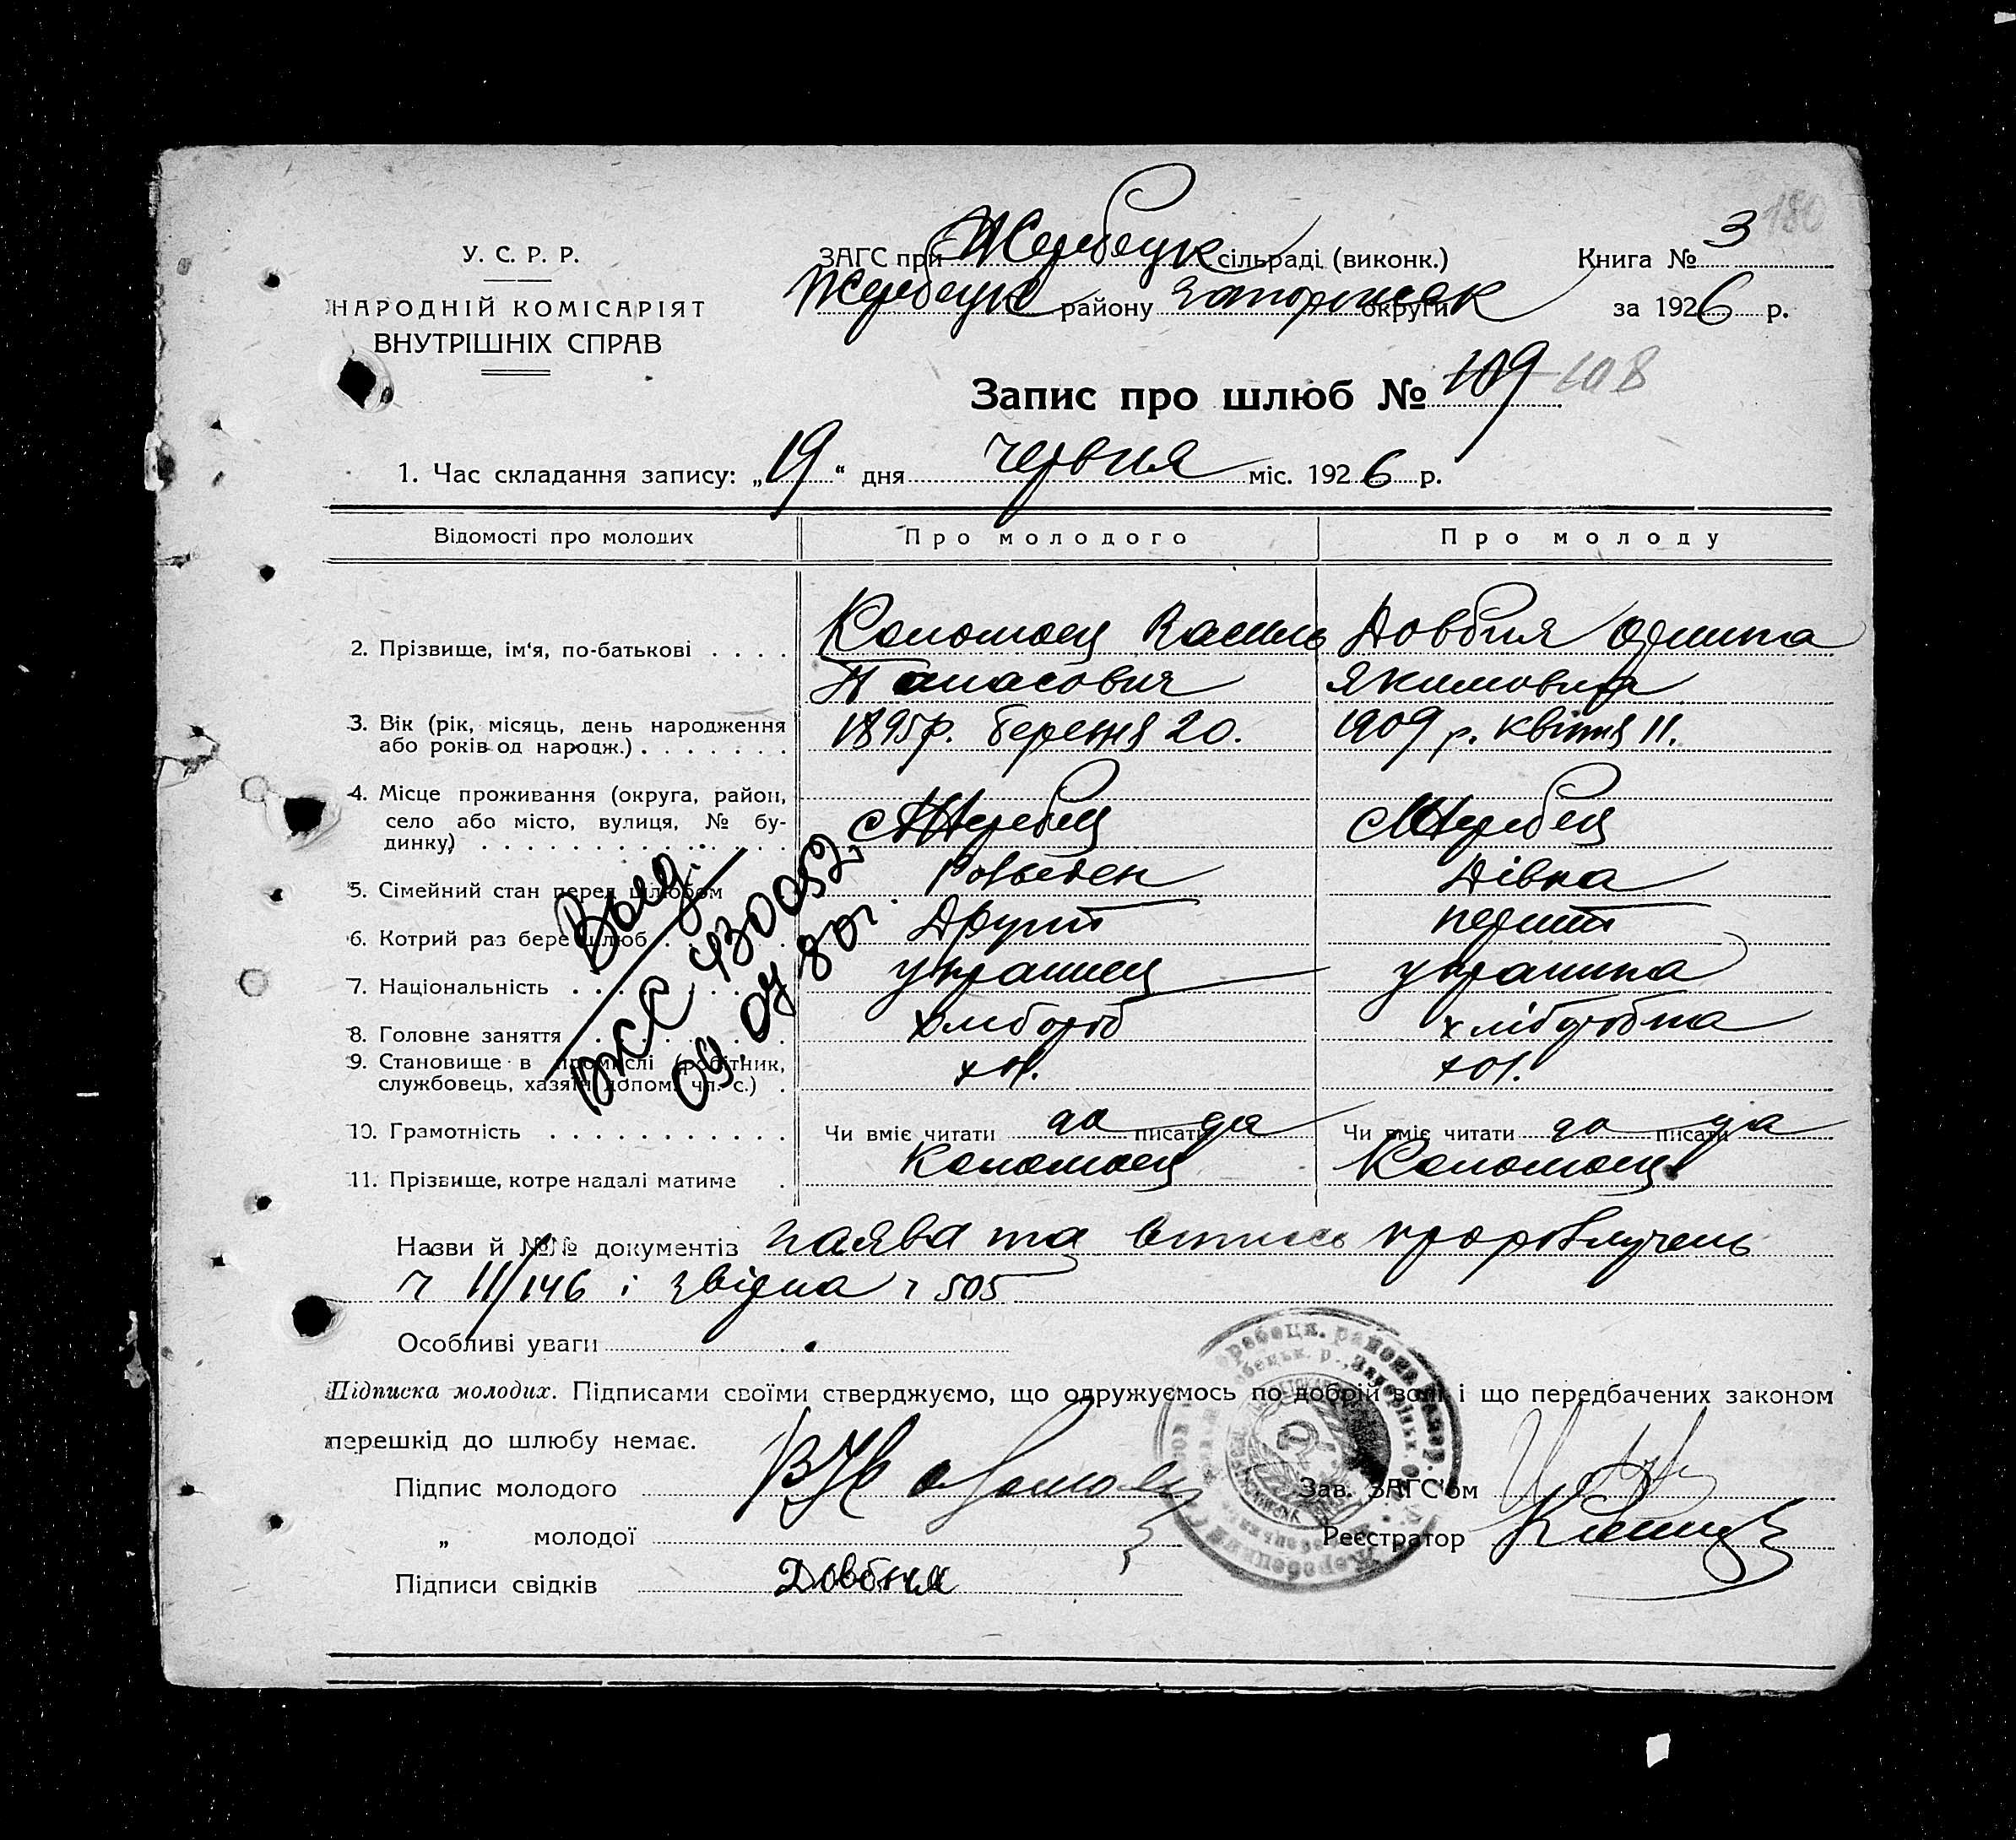 180
У. С. Р. Р.
НАРОДНІЙ КОМІСАРІЯТ
ВНУТРІШНІХ СПРАВ
ЗАГС при Жеребецк сільраді (виконк.)
Книга № 3
Жеребецк району Запоріжск округи
за 1926 р.
Запис про шлюб № 109 108
1. Час складання запису: „19“ дня червня міс. 1926 р.
Відомості про молодих
Про молодого
Про молоду
2. Прізвище, ім‘я, по-батькові
Коломоец Василь
Панасович
Довбня
Якимовна
3. Вік (рік, місяць, день народження
або років од народж.)
1895р. березня 20.
1909 р. квітня 11.
4. Місце проживання (округа, район,
село або місто, вулиця, № бу-
динку)
с Жеребец
с Жеребец
5. Сімейний стан перед шлюбом
Дівка
6. Котрий раз бере шлюб
Другий
перший
7. Національність
українец
українка
8. Головне заняття
хлібороб
хліборобка
9. Становище в промислі (робітник,
службовець, хазяїн, допом. чл. с.)
10. Грамотність
Чи вміє читати да писати да
Чи вміє читати да писати да
11. Прізвище, котре надалі матиме
Коломоец
Коломоец
Выд.
ЖС 430052
09.04 80г.
Назви й №№ документів заява та
ч 11/146 і ч 505
Особливі уваги
Підписка молодих. Підписами своїми стверджуємо, що одружуємось по добрій волі і що передбачених законом
перешкід до шлюбу немає.
Підпис молодого
Зав. ЗАГС‘ом
„ молодої
Реєстратор
Підписи свідків
Довбня